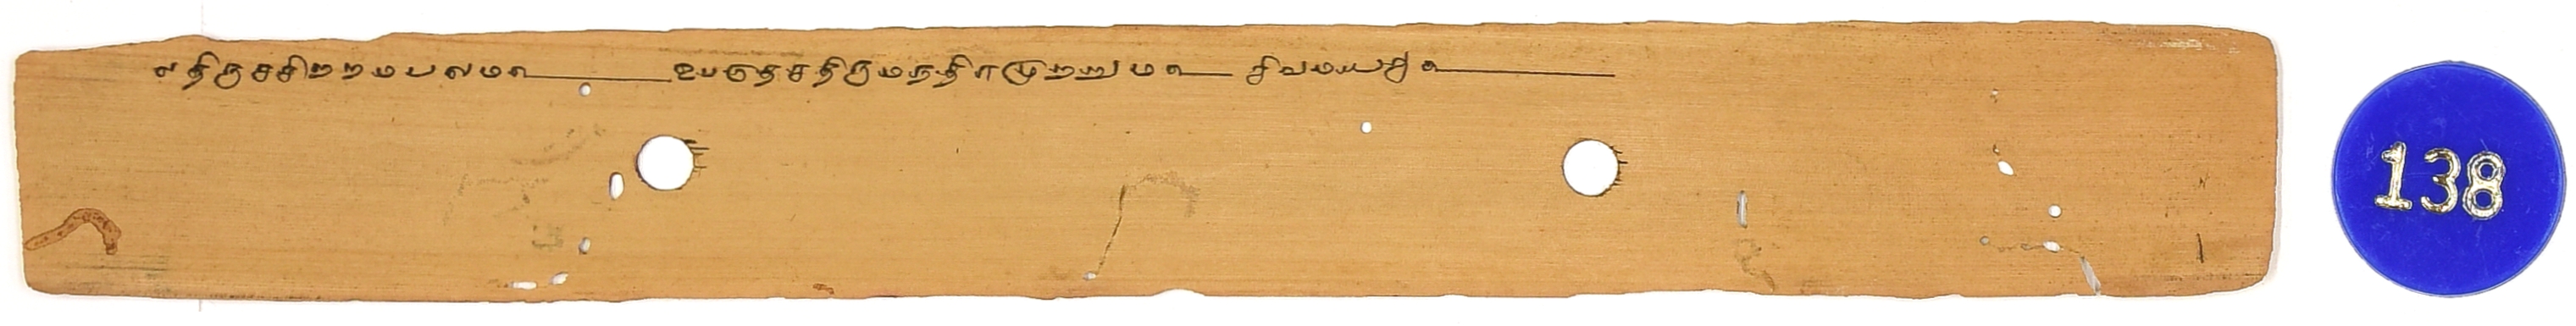 திருசசிறறமபலம உபதேசதிருமநதிரமுறறும சிவமயம
138